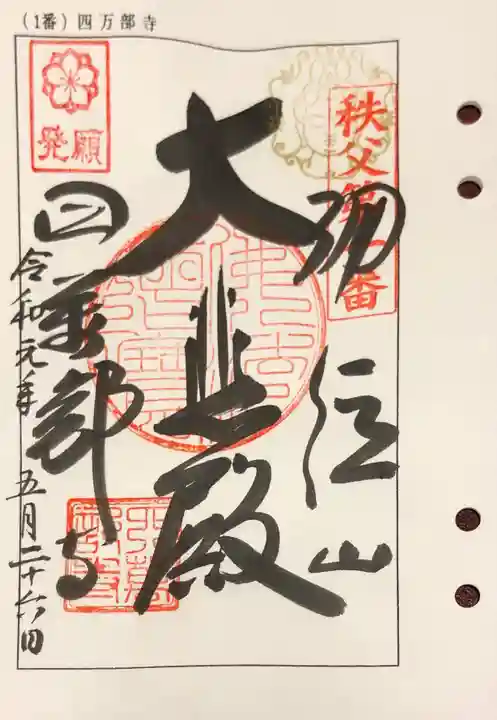 (1番)四万部寺
秩父第一番
発願
誦経山
大悲殿
四萬部寺
令和元年 五月二十六日